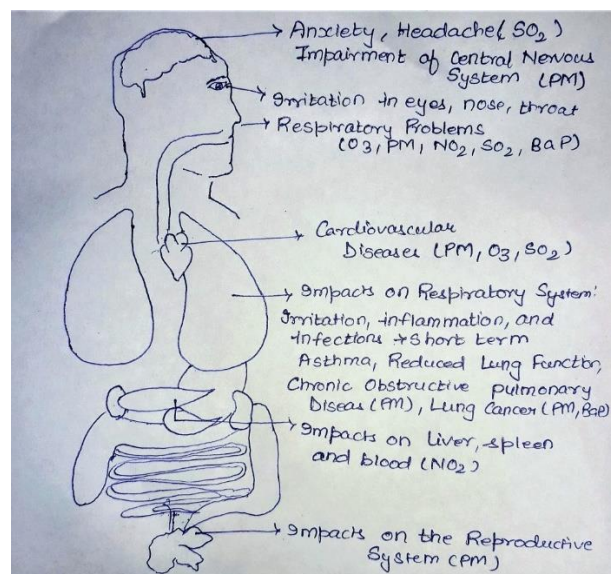 Anxiety, Headache (SO2)
Impairment of Central Nervous
System (PM)
Irritation in eyes, nose, throat
Respiratory Problems
(O3, PM, NO2, SO2, BaP)
Cardiovascular
Diseases (PM, O3, SO2)
Impacts on Respiratory System:
Irritation, inflammation, and
infections → Short term
Asthma, Reduced Lung Function,
Chronic Obstructive pulmonary
Diseas (PM), Lung Cancer (PM, BaP)
Impacts on Liver, spleen
and blood (NO2)
Impacts on the Reproductive
System (PM)